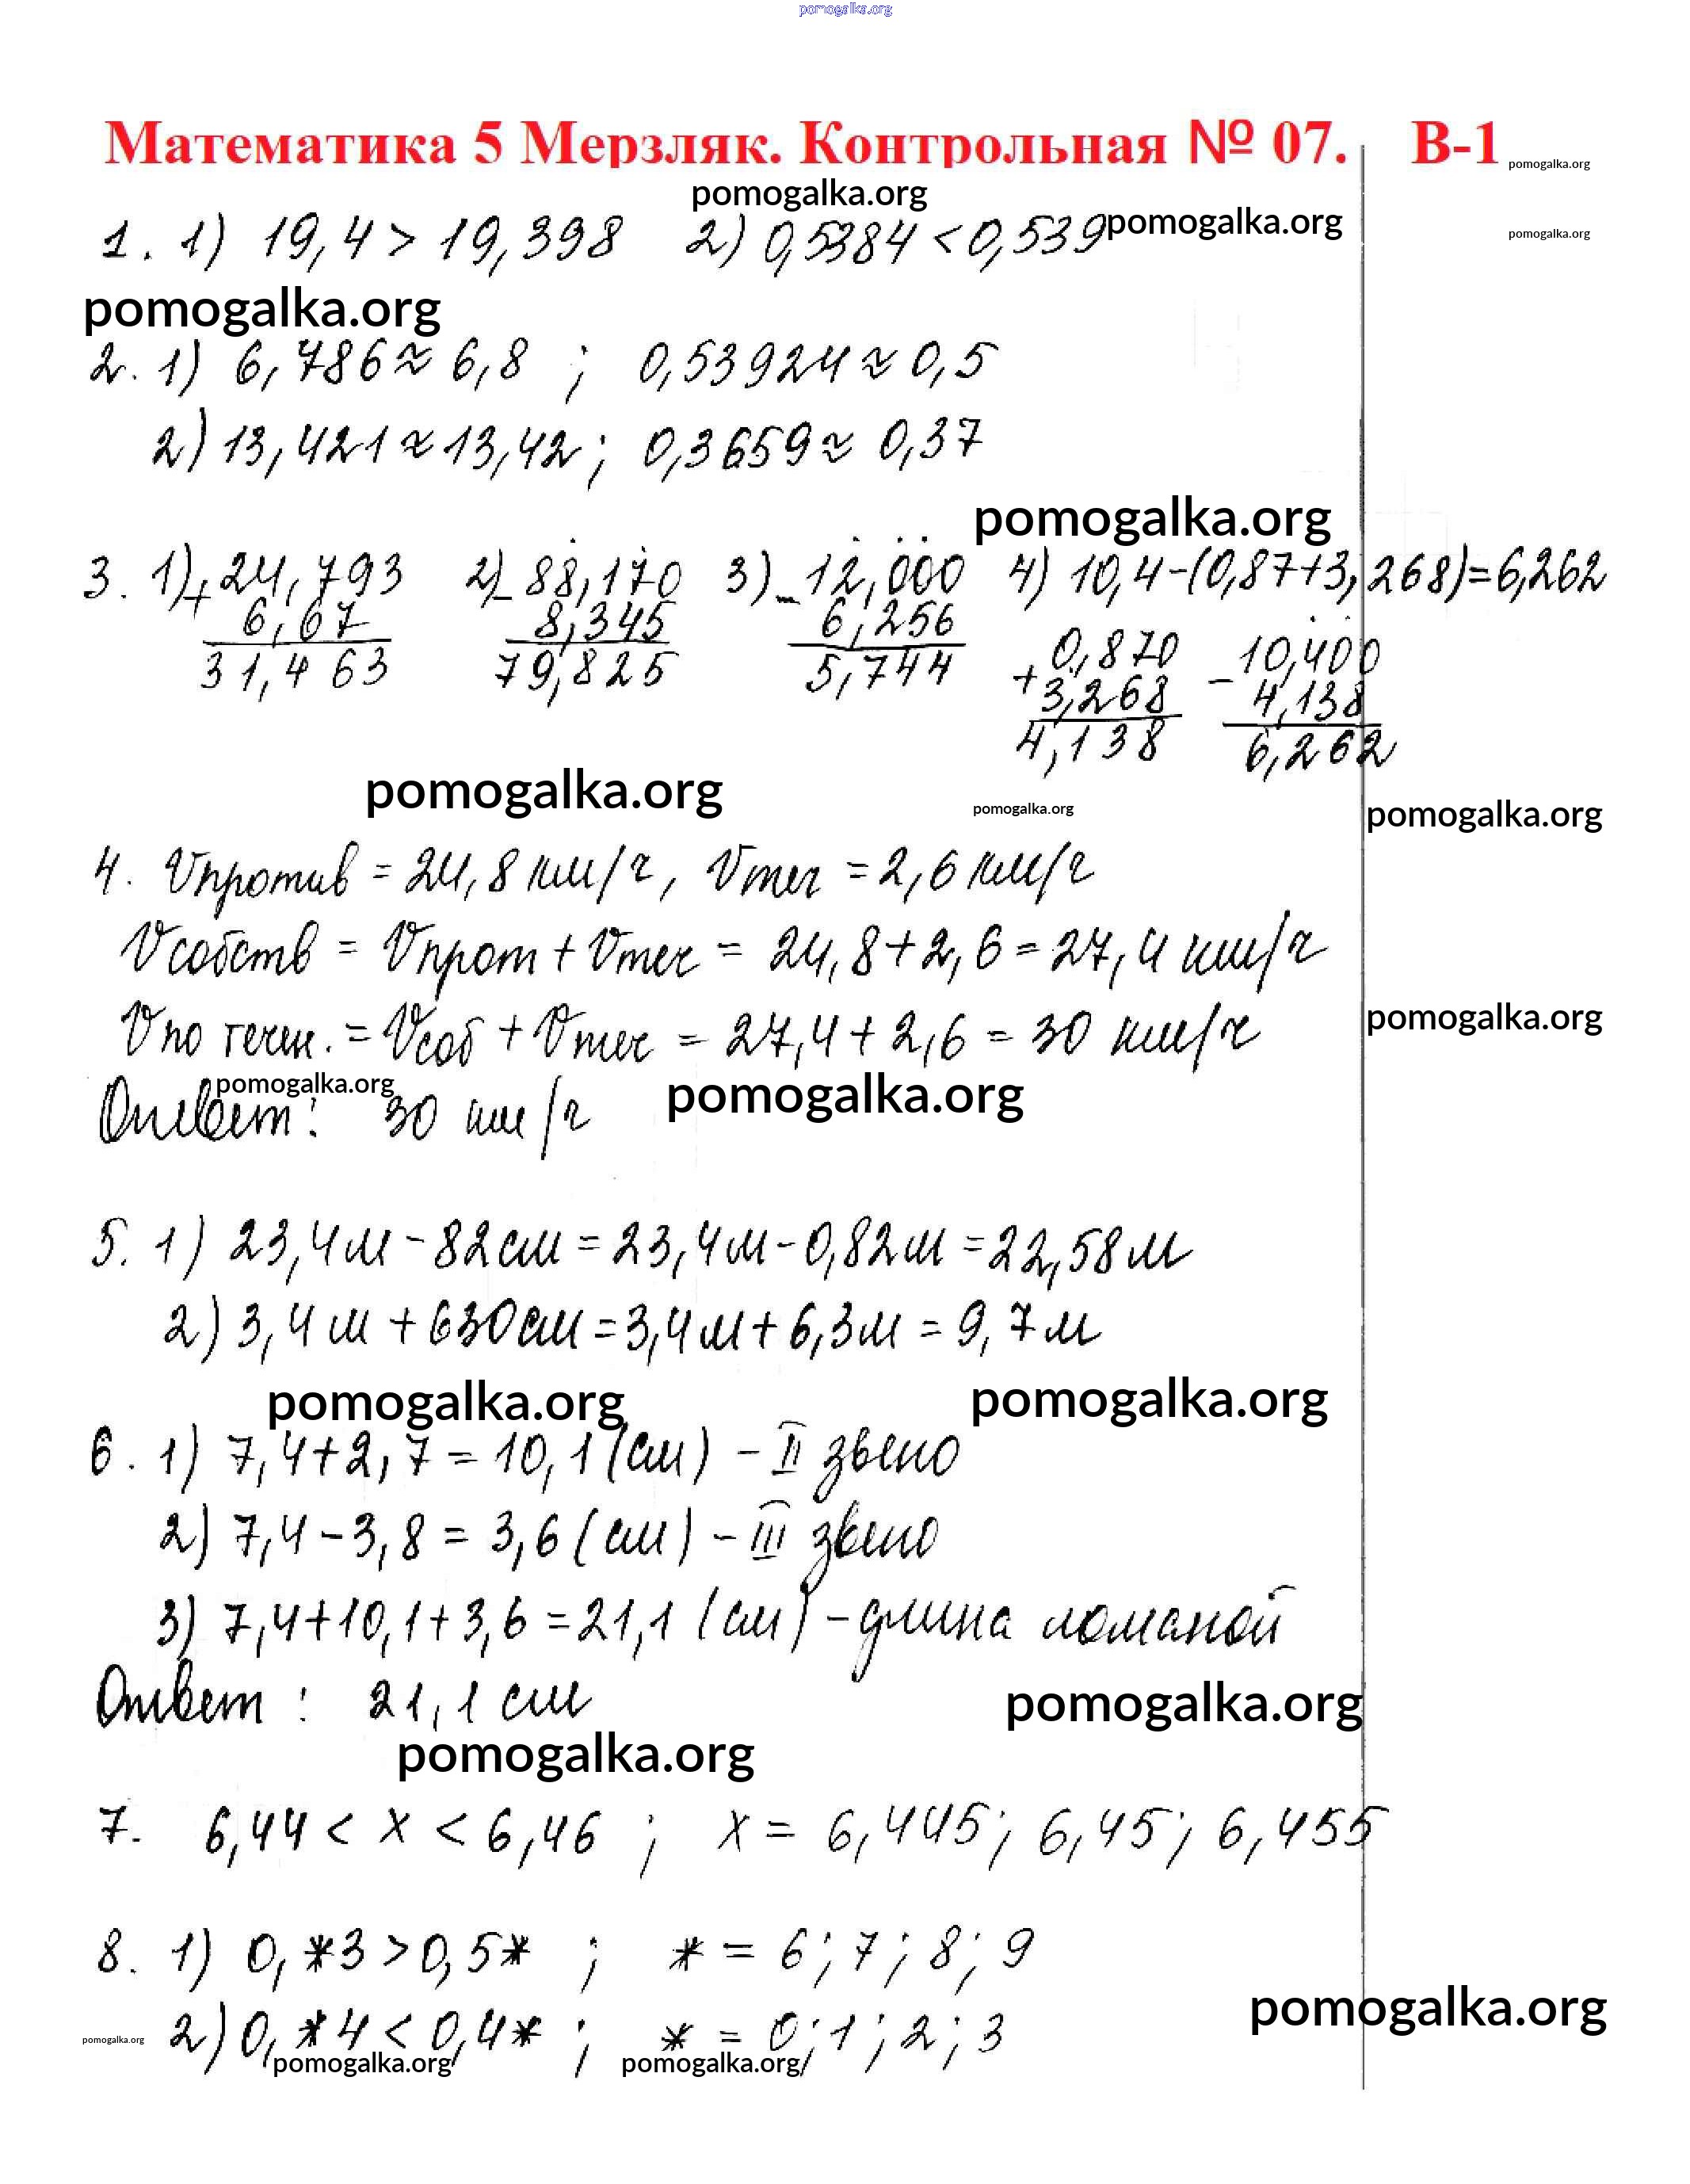 pomogalka.org
Математика 5 Мерзляк. Контрольная № 07. В-1 pomogalka.org
pomogalka.org
1. 1) 19,4 > 19,398 2) 0,5384 < 0,539 pomogalka.org pomogalka.org
pomogalka.org
2. 1) 6,786 ≈ 6,8 ; 0,53924 ≈ 0,5
2) 13,421 ≈ 13,42 ; 0,3659 ≈ 0,37
pomogalka.org
3. 1) + 24,793 2) - 88,170 3) - 12,000 4) 10,4-(0,87+3,268)=6,262
6,67 8,345 6,256
31,463 79,825 5,744
+ 0,870 - 10,400
3,268 4,138
4,138 6,262
pomogalka.org pomogalka.org pomogalka.org
4. Vпротив = 24,8 км/ч, Vтеч = 2,6 км/ч
Vсобств = Vпрот + Vтеч = 24,8+2,6=27,4 км/ч
Vпо течен. = Vсоб + Vтеч = 27,4+2,6 = 30 км/ч
pomogalka.org
pomogalka.org pomogalka.org
Ответ: 30 км/ч
5. 1) 23,4м - 82см = 23,4м - 0,82м = 22,58м
2) 3,4м + 630см = 3,4м + 6,3м = 9,7м
pomogalka.org pomogalka.org
6. 1) 7,4+2,7 = 10,1 (см) - II звено
2) 7,4-3,8 = 3,6 (см) - III звено
3) 7,4+10,1+3,6 = 21,1 (см) - длина ломаной
Ответ: 21,1 см
pomogalka.org
pomogalka.org
7. 6,44 < x < 6,46 ; x = 6,445; 6,45; 6,455
8. 1) 0,*3 > 0,5* ; * = 6; 7; 8; 9
pomogalka.org
2) 0,*4 < 0,4* ; * = 0; 1; 2; 3
pomogalka.org
pomogalka.org pomogalka.org